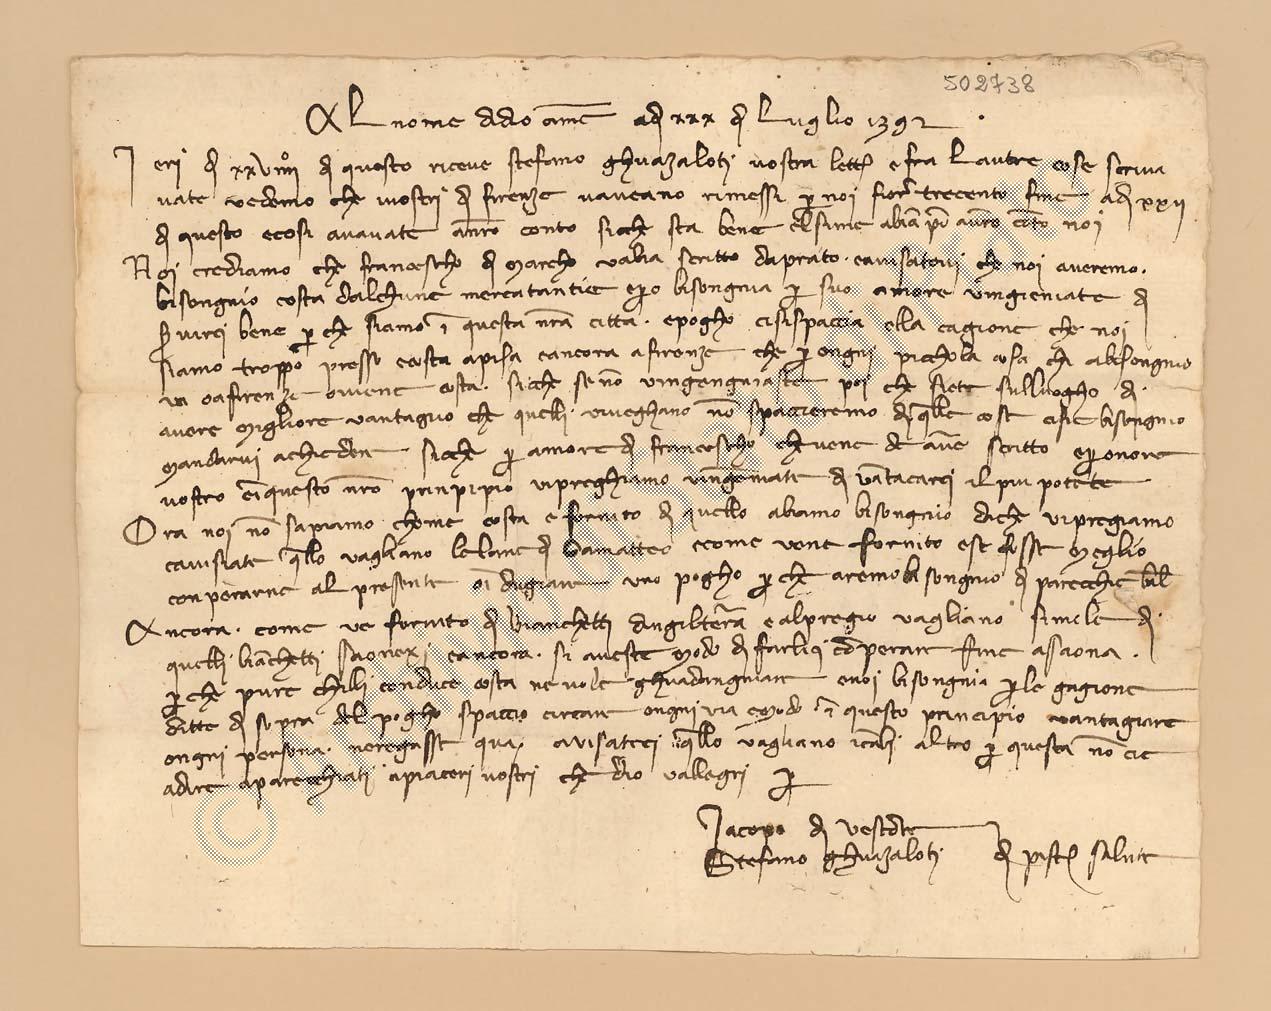 502738
Al nome di dio ame adi xxx di Luglio 1392
Ieri di xxviiii di questo riceve stefano ghuazaloti vostra lett e fra l autre cose scriva
vate vedemo che i vostri di firenze v aveano rimessi p noi fior trecento fine adi xxii
di questo e cosi avavate a nro conto sicche sta bene el simie abian p voi a vro conto noi
Noi crediamo che franciescho di marcho v abia scritto da prato e avisatovi che noi averemo
bisongnio costa d alchune mercatantie e pero bisongnia p suo amore v ingieniate di
servirci bene p che siamo i questa nra citta e pogho ci si spaccia e lla cagione che noi
siamo troppo presso costa a pisa e ancora a firenze che p ongni picchola cosa ch abisongnio
va o a firenze o viene costa sicche se no v ingengniaste poi che siete sul luogho di
avere migliore vantagio che quelli vi veghano no spaccieremo di qlle cose ci fie bisongnio
mandarvi a chiedere sicche p amore di franciescho che vene de avere scritto e p onore
vostro e in questo nro prinpipio vi preghiamo v ingeniate di vantacarci il piu potete
Ora noi no sapiamo chome costa e fornito di quello abiamo bisongnio di che vi pregiamo
ci avisiate qllo vagliano le lane di samatteo e come v e ne fornito e se fosse meglio
conperarne al presente o indugiare uno pogho p che aremo bisongnio di parecchie bal
Ancora come v e fornito di bianchetti d ingilterra e al pregio vagliano simele di
quelli bianchetti saonexi e ancora si aveste modo di farli qi conperare fine a ssaona
p che pure chi lli conduce costa ne vole ghuadangniare e noi bisongnia p le gagione
ditte di sopra del pogho spaccio circare ongni via e modo i questo principio vantagiare
ongni persona ne regasse qua avisateci qllo vagliano i cuoi altro p questa no c e
a dire aparecchiati a piaceri vostri che dio vallegri p
Iacopo di vestre
Stefano ghuazaloti di pist salute